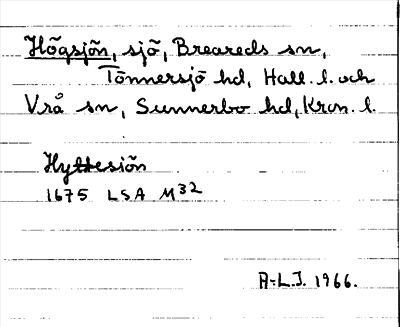 Högsjön, sjö, Breareds sn,
Tönnersjö hd, Hall. l. och
Vrå sn, Sunnerbo hd, Kron. l.
Hyltesjön
1675 LSA M32
A-L.J. 1966.